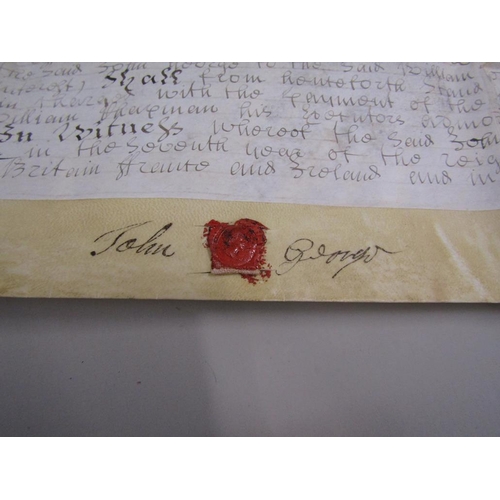 the said John George to the said William
Interest) Shall from henceforth stand
with the payment of the
William Chapman his Executors Admo
In Witness whereof the said John
in the Seventh year of the reig
Britain France and Ireland and in
John George